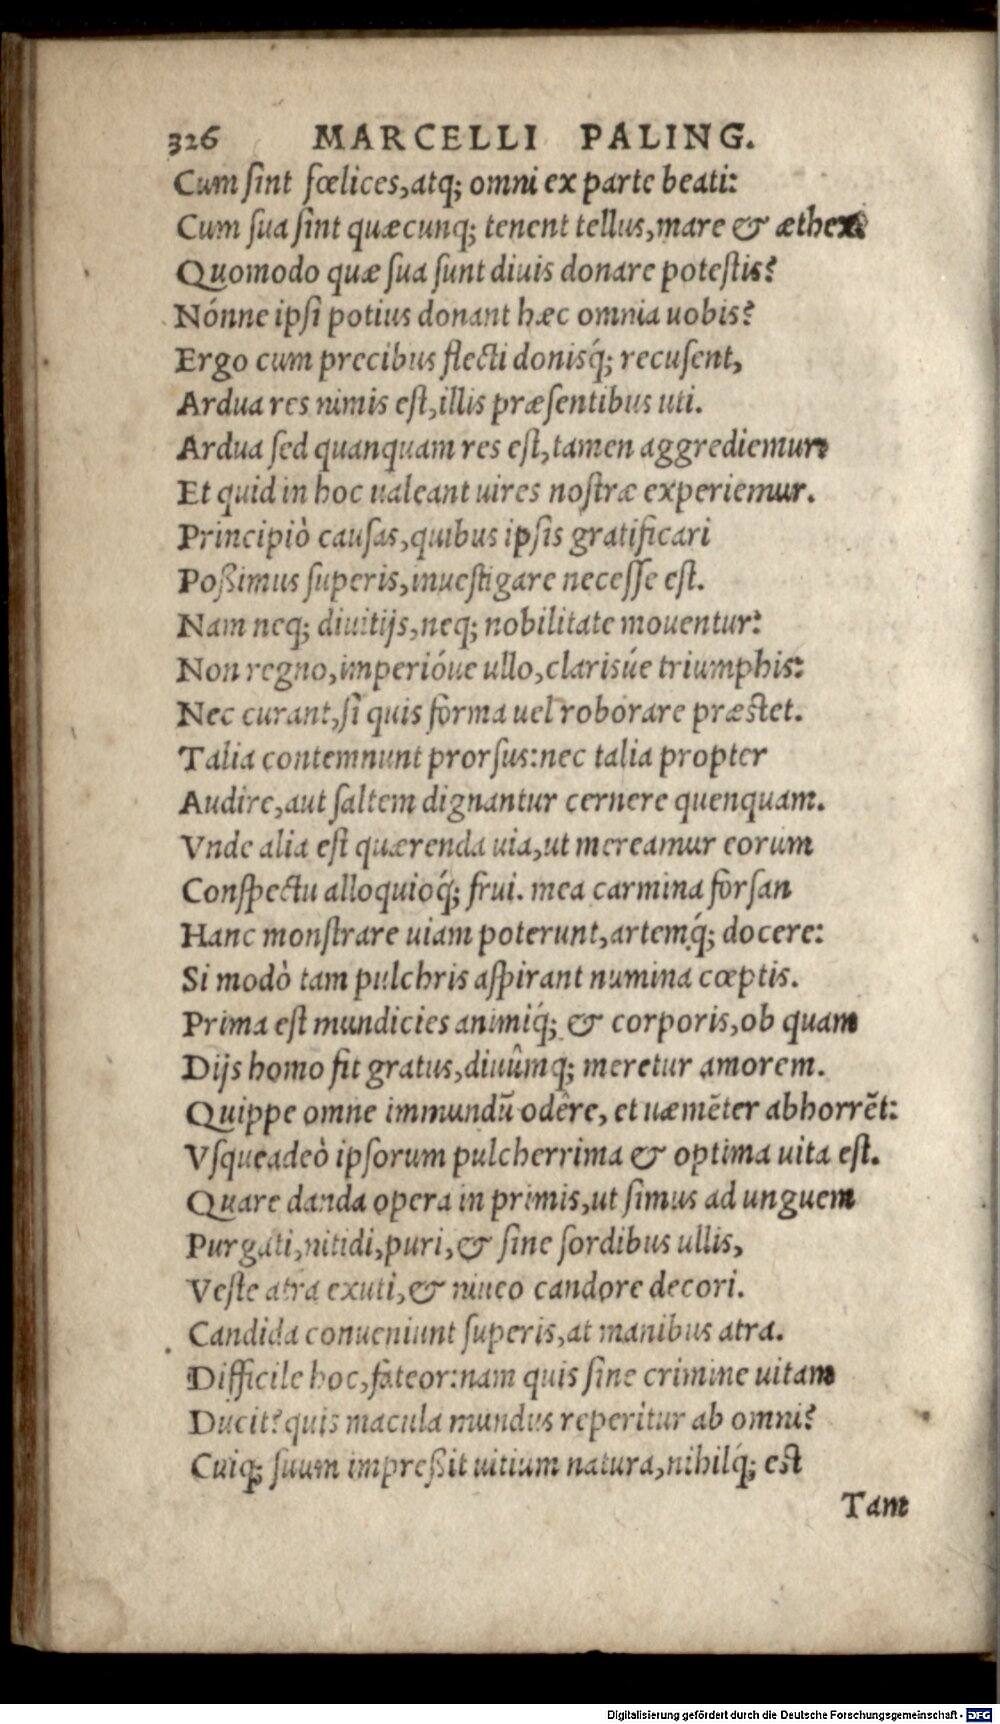 326 MARCELLI PALING.
Cum sint fœlices, atq; omni ex parte beati:
Cum sua sint quæcunq; tenent tellus, mare & æther.
Quomodo quæ sua sunt diuis donare potestis?
Nónne ipsi potius donant hæc omnia uobis?
Ergo cum precibus flecti donisq́; recusent,
Ardua res nimis est, illis præsentibus uti.
Ardua sed quanquam res est, tamen aggrediemur:
Et quid in hoc ualeant uires nostræ experiemur.
Principiò causas, quibus ipsis gratificari
Poßimus superis, inuestigare necesse est.
Nam neq; diuitijs, neq; nobilitate mouentur:
Non regno, imperióue ullo, clarisúe triumphis:
Nec curant, si quis forma uel roborare præstet.
Talia contemnunt prorsus: nec talia propter
Audire, aut saltem dignantur cernere quenquam.
Vnde alia est quærenda uia, ut mereamur eorum
Conspectu alloquioq́; frui. mea carmina forsan
Hanc monstrare uiam poterunt, artemq́; docere:
Si modò tam pulchris aspirant numina cœptis.
Prima est mundicies animiq́; & corporis, ob quam
Dijs homo fit gratus, diuûmq; meretur amorem.
Quippe omne immundū odêre, et uæmēter abhorrēt:
Vsqueadeò ipsorum pulcherrima & optima uita est.
Quare danda opera in primis, ut simus ad unguem
Purgati, nitidi, puri, & sine sordibus ullis,
Veste atra exuti, & niueo candore decori.
Candida conueniunt superis, at manibus atra.
Difficile hoc, fateor: nam quis sine crimine uitam
Ducit? quis macula mundus reperitur ab omni?
Cuiq; suum impreßit uitium natura, nihilq́; est
Tam
Digitalisierung gefördert durch die Deutsche Forschungsgemeinschaft - DFG